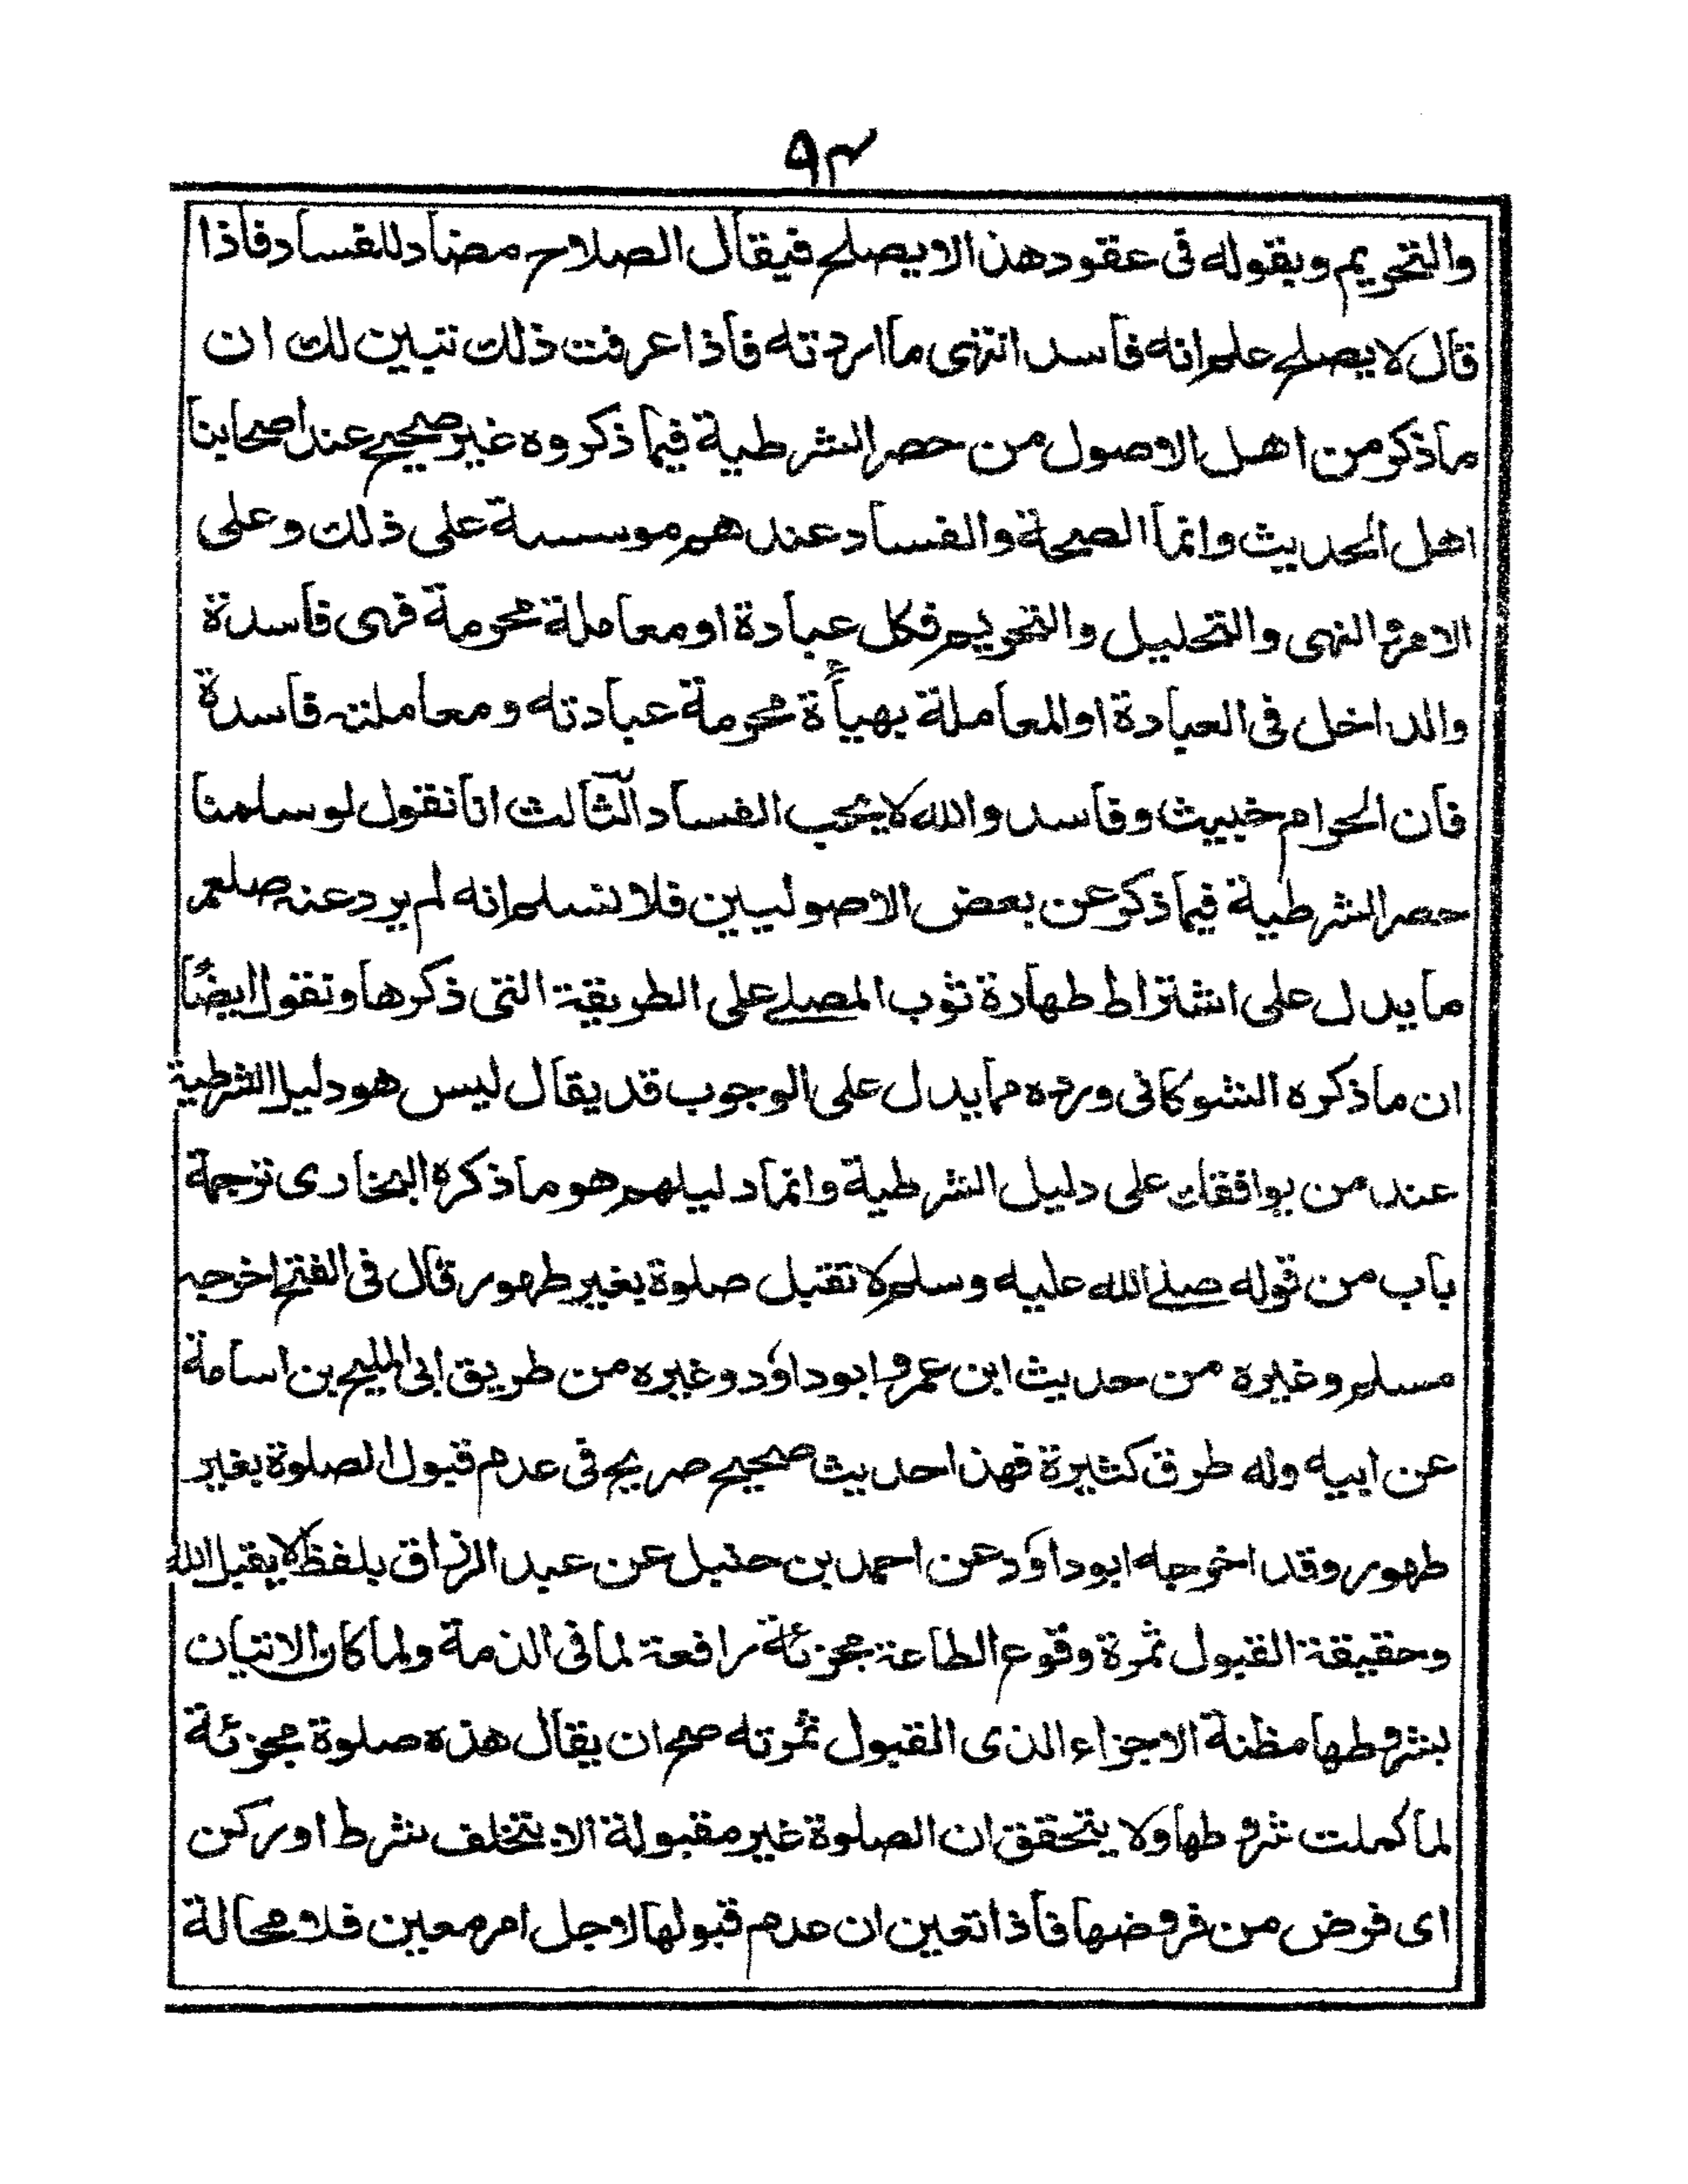 ٩٣
والتحريم وبقوله فى عقود هذا لا يصلح فيقال الصلاح مضاد للفساد فاذا
قال لا يصلح علم انه فاسد انتهى ما اردته فاذا عرفت ذلك تبين لك ان
ما ذكر من اهل الاصول من حصر الشرطية فيما ذكروه غير صحيح عند اصحابنا
اهل الحديث وانما الصحة والفساد عندهم موسسة على ذلك وعلى
الامر والنهى والتحليل والتحريم فكل عبادة او معاملة محرمة فهى فاسدة
والداخل فى العبادة او المعاملة بهيأة محرمة عبادته ومعاملته فاسدة
فان الحرام خبيث وفاسد والله لا يحب الفساد الثالث انا نقول لو سلمنا
حصر الشرطية فيما ذكر عن بعض الاصوليين فلا نسلم انه لم يرد عنه صلعم
ما يدل على اشتراط طهارة ثوب المصلے على الطريقة التى ذكرها ونقول ايضًا
ان ما ذكره الشوكانى ورده مما يدل على الوجوب قد يقال ليس هو دليل الشرطية
عند من يوافقك على دليل الشرطية وانما دليلهم هو ما ذكره البخارى ترجمة
باب من قوله صلے الله عليه وسلم لا تقبل صلوة بغير طهور قال فى الفتح اخرجه
مسلم وغيره من حديث ابن عمر و ابو داؤد وغيره من طريق ابى المليح بن اسامة
عن ابيه وله طرق كثيرة فهذا حديث صحيح صريح فى عدم قبول الصلوة بغير
طهور وقد اخرجه ابو داؤد عن احمد بن حنبل عن عبد الرزاق بلفظ لا يقبل الله
وحقيقة القبول ثمرة وقوع الطاعة مجزئة رافعة لما فى الذمة ولما كان الاتيان
بشروطها مظنة الاجزاء الذى القبول ثمرته صح ان يقال هذه صلوة مجزئة
لما كملت شروطها ولا يتحقق ان الصلوة غير مقبولة الا بتخلف شرط او ركن
اى فرض من فروضها فاذا تعين ان عدم قبولها لاجل امر معين فلا محالة